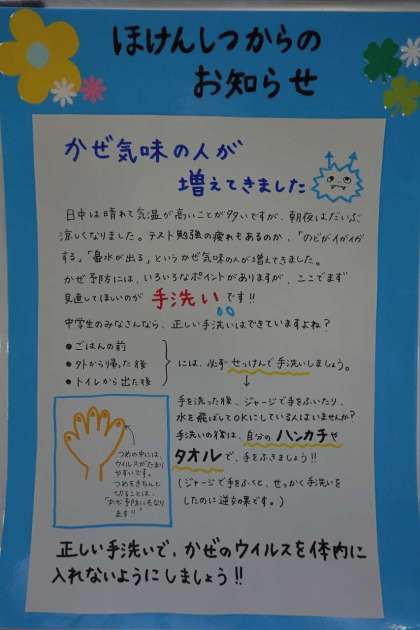 ほけんしつからの
お知らせ
かぜ気味の人が
増えてきました
日中は晴れて気温が高いことが多いですが、朝夜はだいぶ
涼しくなりました。テスト勉強の疲れもあるのか、「のどがイガイガ
する」「鼻水が出る」というかぜ気味の人が増えてきました。
かぜ予防には、いろいろなポイントがありますが、ここでまず
見直してほしいのが 手洗い です!!
中学生のみなさんなら、正しい手洗いはできていますよね?
●ごはんの前
●外から帰った後
●トイレから出た後
には、必ずせっけんで手洗いしましょう。
手を洗った後、ジャージで手をふいたり、
水を飛ばしてOKにしている人はいませんか?
手洗いの後は、自分のハンカチや
タオルで、手をふきましょう!!
(ジャージで手をふくと、せっかく手洗いを
したのに逆効果です。)
つめの中には、
ウイルスがたまり
やすいです。
つめをきちんと
切ることは、
"かぜ予防にもなり
ます!!"
正しい手洗いで、かぜのウイルスを体内に
入れないようにしましょう!!